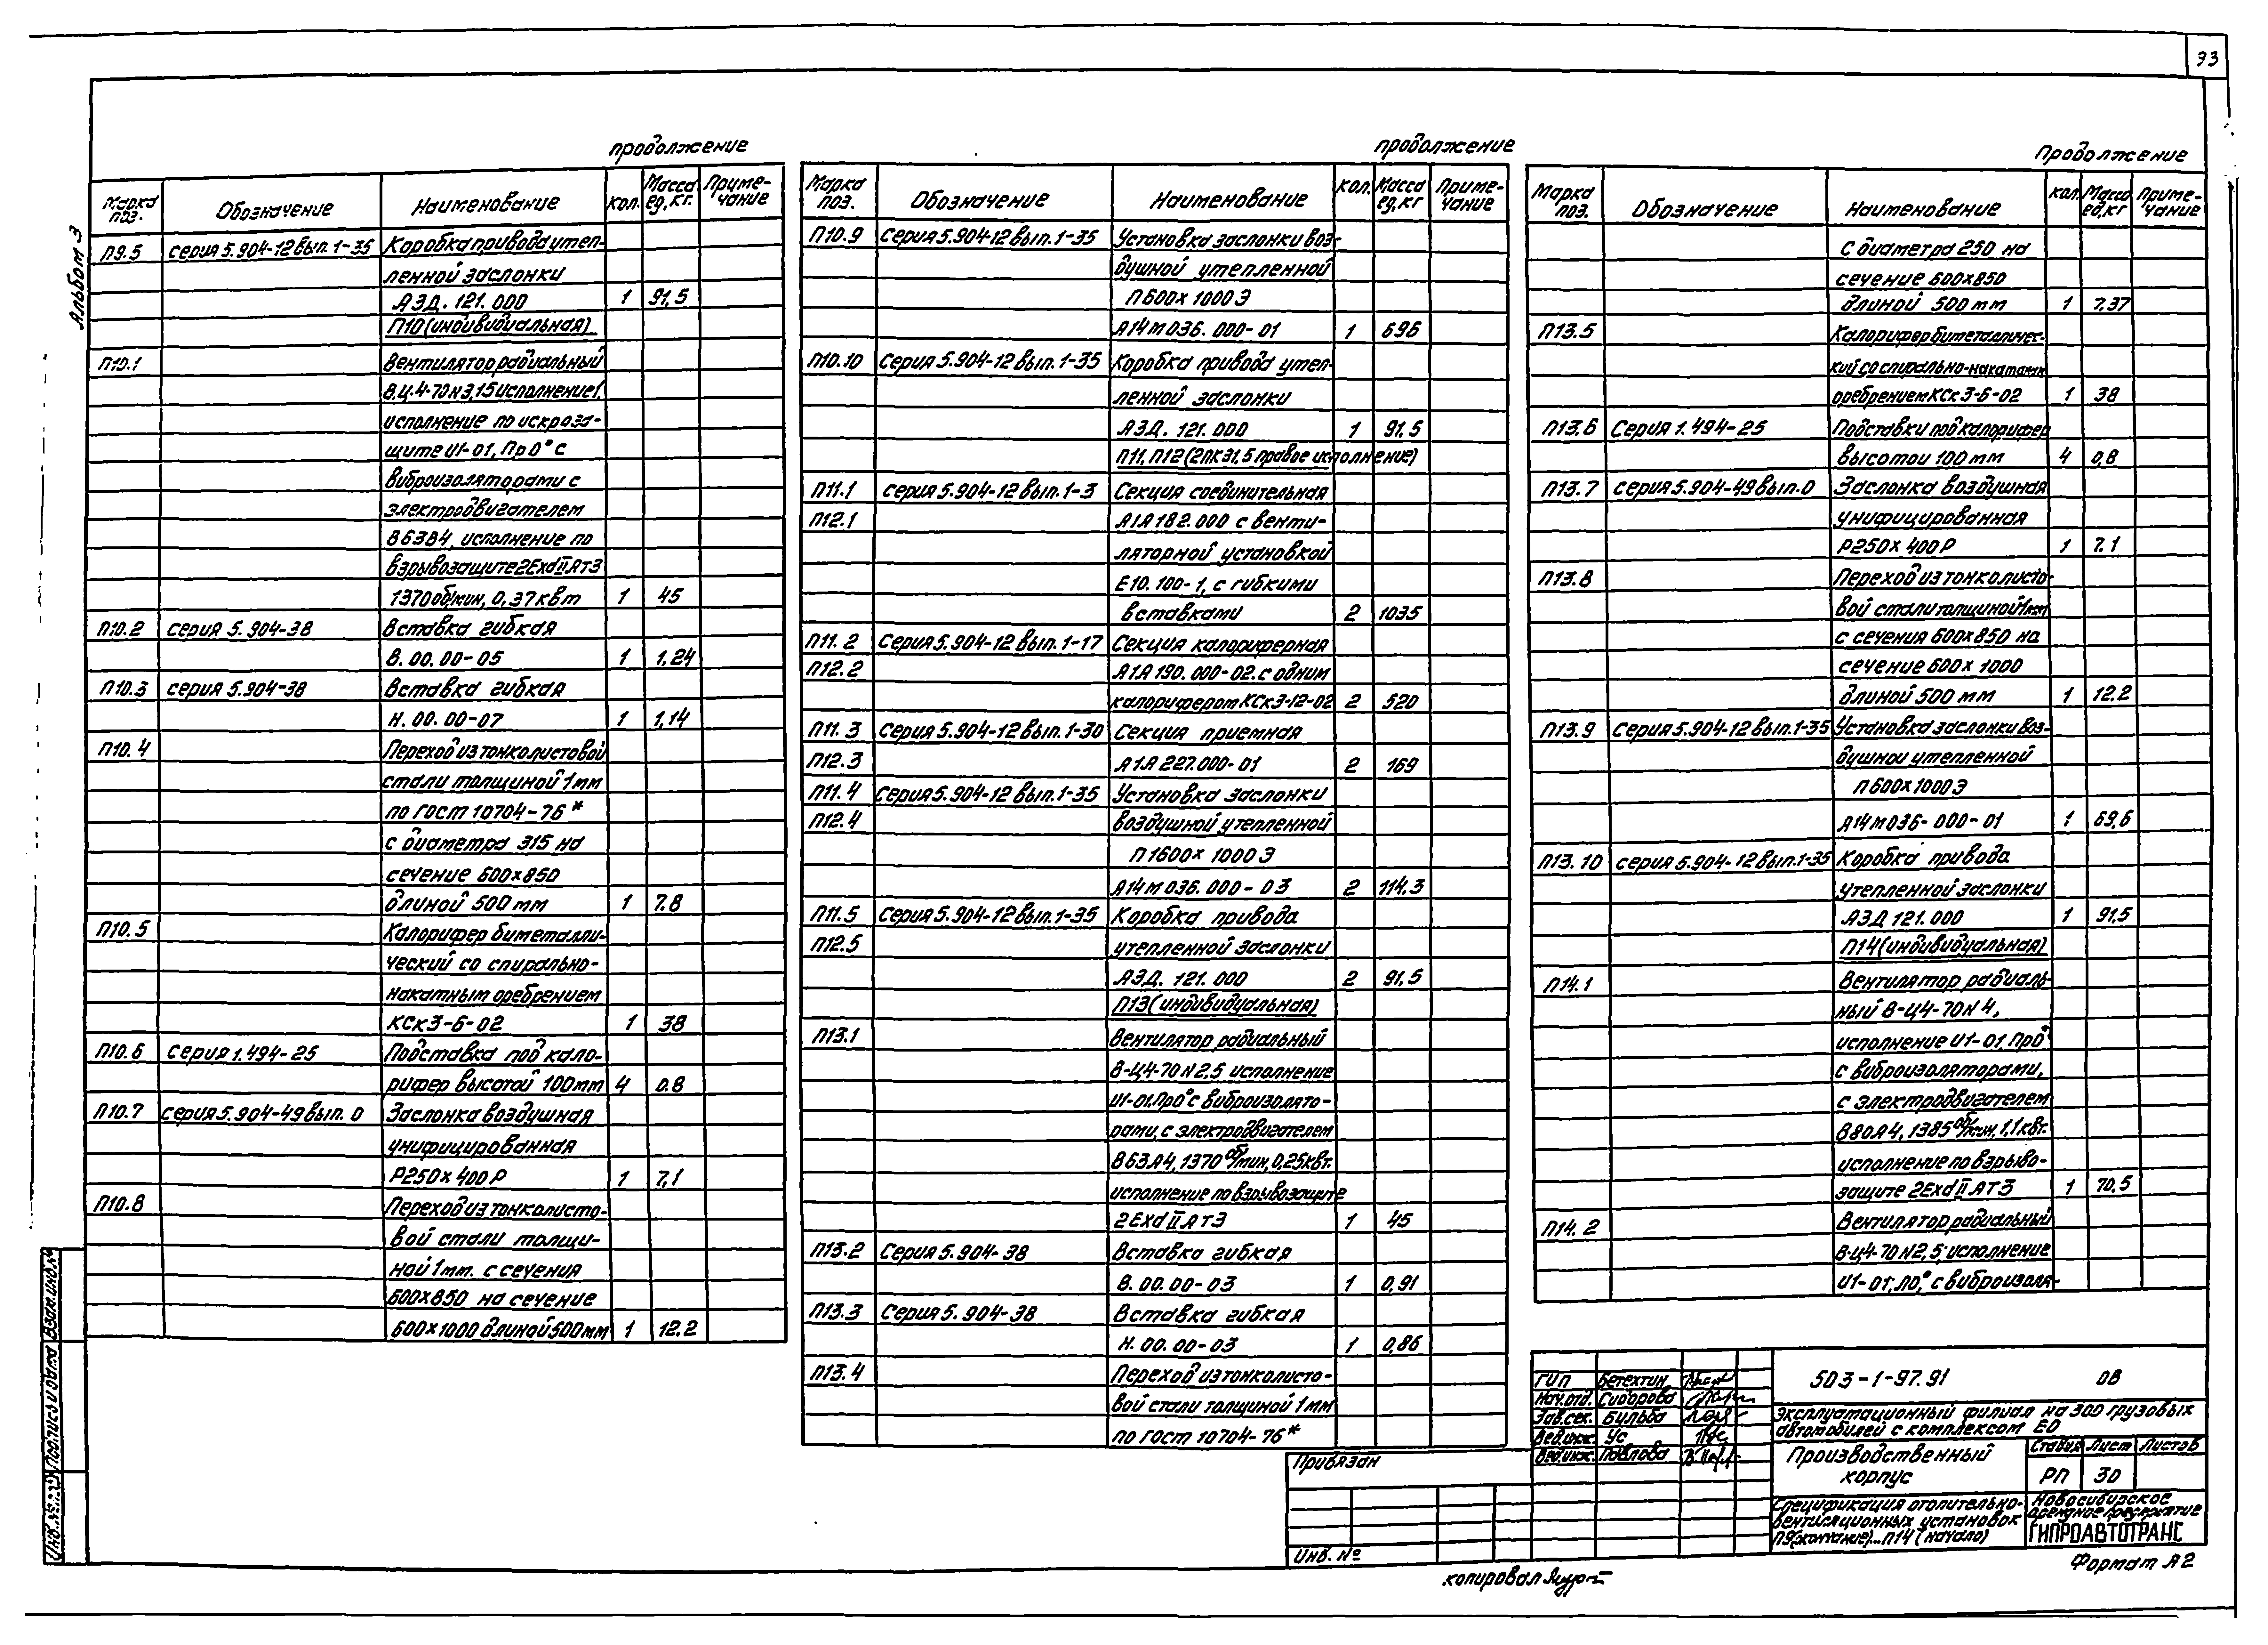 93
Альбом 3
продолжение
Марка поз. Обозначение Наименование Кол. Масса ед, кг. Приме-чание
П9.5 серия 5.904-12 вып. 1-35 Коробка привода утеп-
ленной заслонки
АЗД. 121.000 1 91,5
П10 (индивидуальная)
П10.1 Вентилятор радиальный
В.Ц.4-70 н 3,15 исполнение 1,
исполнение по искроза-
щите И1-01, Пр0° с
виброизоляторами с
электродвигателем
В63В4, исполнение по
взрывозащите 2ExdIIАТ3
1370 об/мин, 0,37 квт 1 45
П10.2 серия 5.904-38 Вставка гибкая
В. 00.00-05 1 1,24
П10.3 серия 5.904-38 Вставка гибкая
Н. 00.00-07 1 1,14
П10.4 Переход из тонколистовой
стали толщиной 1 мм
по ГОСТ 10704-76*
с диаметра 315 на
сечение 600х850
длиной 500 мм 1 7.8
П10.5 Калорифер биметалли-
ческий со спирально-
накатным оребрением
КСк3-6-02 1 38
П10.6 Серия 1.494-25 Подставка под кало-
рифер высотой 100 мм 4 0.8
П10.7 Серия 5.904-49 вып. 0 Заслонка воздушная
унифицированная
Р250х400Р 1 7,1
П10.8 Переход из тонколисто-
вой стали толщи-
ной 1 мм. с сечения
600х850 на сечение
600х1000 длиной 500 мм 1 12.2
продолжение
Марка поз. Обозначение Наименование Кол. Масса ед, кг Приме-чание
П10.9 Серия 5.904-12 вып. 1-35 Установка заслонки воз-
душной утепленной
П600х1000Э
А14М036.000-01 1 696
П10.10 Серия 5.904-12 вып. 1-35 Коробка привода утеп-
ленной заслонки
АЗД. 121.000 1 91,5
П11, П12 (2ПК31,5 правое исполнение)
П11.1 серия 5.904-12 вып. 1-3 Секция соединительная
П12.1 А1А182.000 с венти-
ляторной установкой
Е10.100-1, с гибкими
вставками 2 1035
П11.2 Серия 5.904-12 вып. 1-17 Секция калориферная
П12.2 А1А190.000-02. с одним
калорифером КСк3-12-02 2 520
П11.3 Серия 5.904-12 вып. 1-30 Секция приемная
П12.3 А1А227.000-01 2 169
П11.4 Серия 5.904-12 вып. 1-35 Установка заслонки
П12.4 воздушной утепленной
П1600х1000Э
А14М036.000-03 2 114,3
П11.5 Серия 5.904-12 вып. 1-35 Коробка привода
П12.5 утепленной заслонки
АЗД. 121.000 2 91,5
П13 (индивидуальная)
П13.1 Вентилятор радиальный
В-Ц4-70 N 2,5 исполнение
И1-01. Пр0° с виброизолято-
рами, с электродвигателем
В63А4, 1370 об/мин, 0,25 квт.
исполнение по взрывозащите
2ExdIIАТ3 1 45
П13.2 Серия 5.904-38 Вставка гибкая
В. 00.00-03 1 0,91
П13.3 Серия 5.904-38 Вставка гибкая
Н. 00.00-03 1 0,86
П13.4 Переход из тонколисто-
вой стали толщиной 1 мм
по ГОСТ 10704-76*
Продолжение
Марка поз. Обозначение Наименование Кол. Масса ед, кг Приме-чание
С диаметра 250 на
сечение 600х850
длиной 500 мм 1 7.37
П13.5 Калорифер биметалличес-
кий со спирально-накатным
оребрением КСк3-6-02 1 38
П13.6 Серия 1.494-25 Подставки под калорифер
высотой 100 мм 4 0,8
П13.7 серия 5.904-49 вып. 0 Заслонка воздушная
унифицированная
Р250х400Р 1 7.1
П13.8 Переход из тонколисто-
вой стали толщиной 1 мм
с сечения 600х850 на
сечение 600х1000
длиной 500 мм 1 12.2
П13.9 Серия 5.904-12 вып. 1-35 Установка заслонки воз-
душной утепленной
П600х1000Э
А14М036-000-01 1 69,6
П13.10 серия 5.904-12 вып. 1-35 Коробка привода
утепленной заслонки
АЗД 121.000 1 91,5
П14 (индивидуальная)
П14.1 Вентилятор радиаль-
ный В-Ц4-70 N 4,
исполнение И1-01, Пр0°
с виброизоляторами,
с электродвигателем
В80А4, 1385 об/мин, 1,1 квт.
исполнение по взрыво-
защите 2ExdIIАТ3 1 70,5
П14.2 Вентилятор радиальный
В-Ц4-70 N 2,5, исполнение
И1-01, Л0°, с виброизоля-
ГИП Бетехтин
Нач. отд. Сидорова
Зав. сек. Бульба
Вед. инж. Ус
Вед. инж. Павлова
503-1-97.91 ОВ
Эксплуатационный филиал на 300 грузовых
автомобилей с комплексом ЕО
Производственный
корпус
Стадия Лист Листов
РП 30
Спецификация отопительно-
вентиляционных установок
П9 (окончание)...П14 (начало)
Новосибирское
арендное предприятие
ГИПРОАВТОТРАНС
Привязан
Инв. №
копировал
Формат А2
Взам. инв. №
Подпись и дата
Инв. № подл.